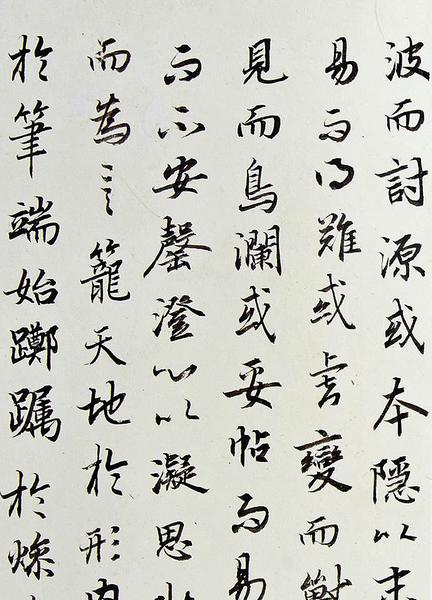 波而討源或本隱以
易而得難或虎變而獸
見而鳥瀾或妥帖而易
而不安罄澄心以凝思
而為言籠天地於形內
於筆端始躑躅於燥